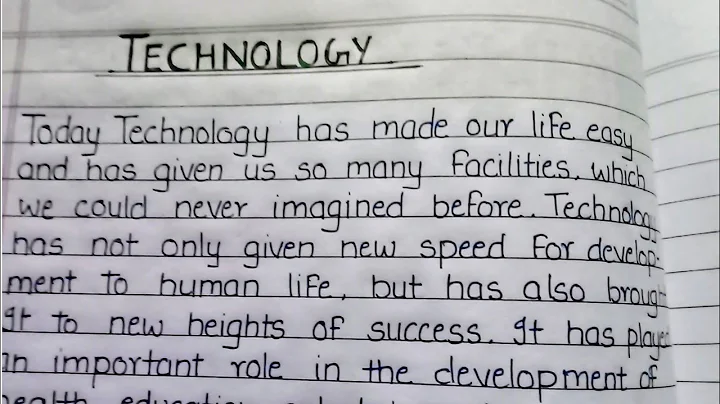 TECHNOLOGY
Today Technology has made our life easy
and has given us so many facilities, which
we could never imagined before. Technology
has not only given new speed for develop-
ment to human life, but has also brough
It to new heights of success. It has played
in important role in the development of
health education